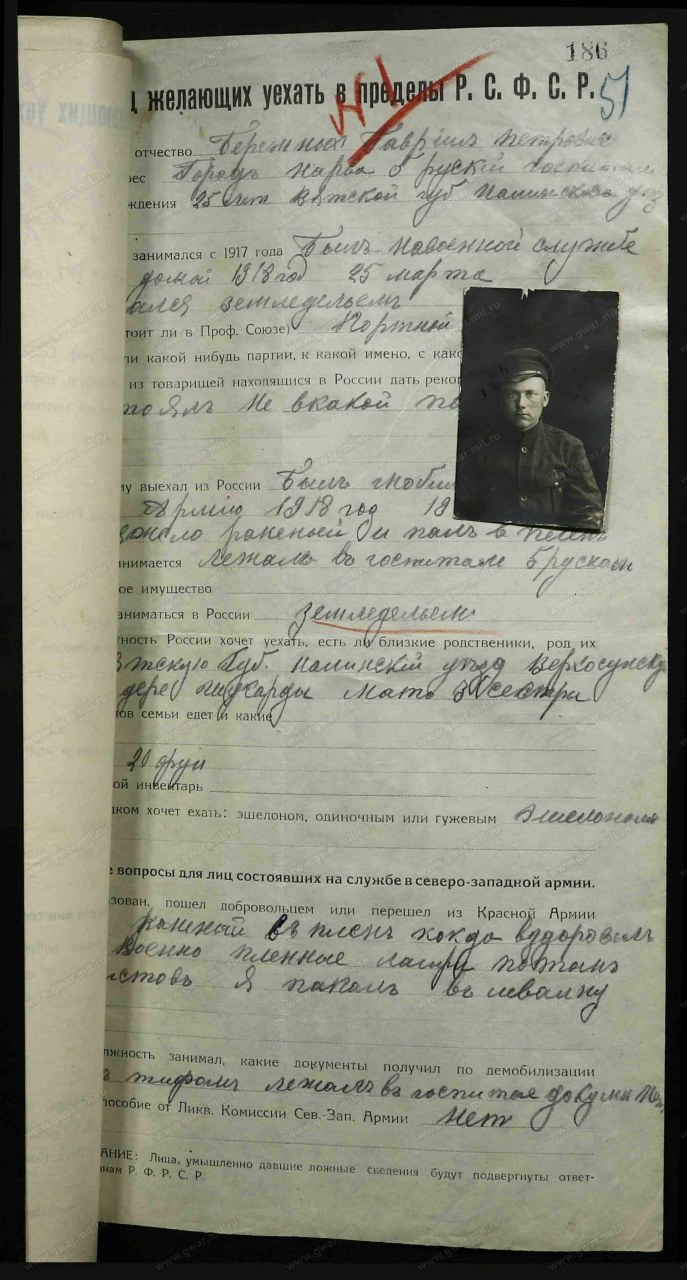 186
желающих уехать в пределы Р. С. Ф. С. Р. 51
№ 1
отчество Бережных Гавріил Петрович
ес Городъ Нарва 5 рускій
ждения 25 лет Вятской губ Нолинскова уез
занимался с 1917 года Былъ навоенной службе
домой 1918 год 25 марта
ался земледельем
тоит ли в Проф. Союзе) Портной
ли какой нибудь партии, к какой имено, с как
из товарищей находящися в России дать реко
тоялъ не вкакой па
му выехал из России Былъ
Армию 1918 год 19
раненый и палъ в пленъ
нимается лежалъ въ госпитале 5 руском
ое имущество
аниматься в России земледельем
тность России хочет уехать, есть ли близкие родственики, род их
тскую Губ. Нолинскій уезд
дере мать 3 сестри
нов семьи едет и какие
20 фун
ой инвентарь
дком хочет ехать: эшелоном, одиночным или гужевым эшелоном
е вопросы для лиц состоявших на службе в северо-западной армии.
зован, пошел добровольцем или перешел из Красной Армии
раненай въ пленъ когда вздоровилъ
военно пленные
я въ
лжность занимал, какие документы получил по демобилизации
тифомъ лежалъ въ госпитале
пособие от Ликв. Комиссии Сев.-Зап. Армии нет
АНИЕ: Лица, умышленно давшие ложные сведения будут подвергнуты ответ-
нам Р. Ф. Р. С. Р.
www.gwar.mil.ru